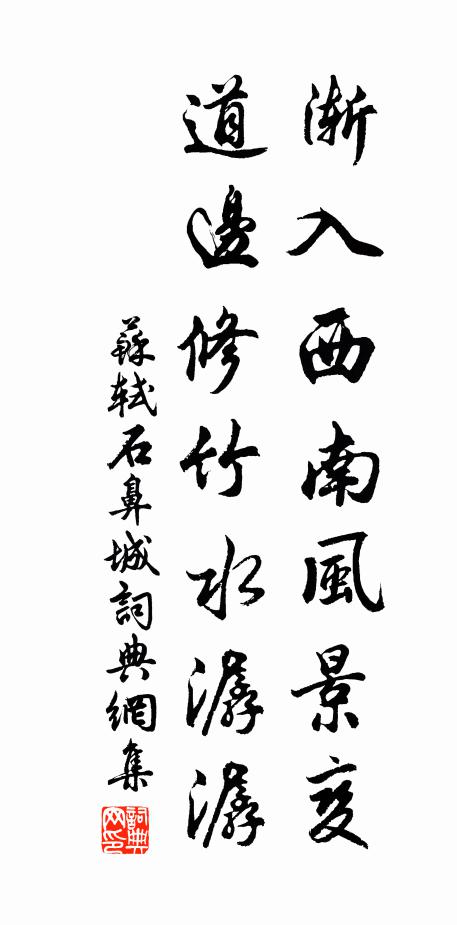 漸入西南風景变
道邊修竹水潺潺
蘇軾石鼻城詞典網集
詞典网印